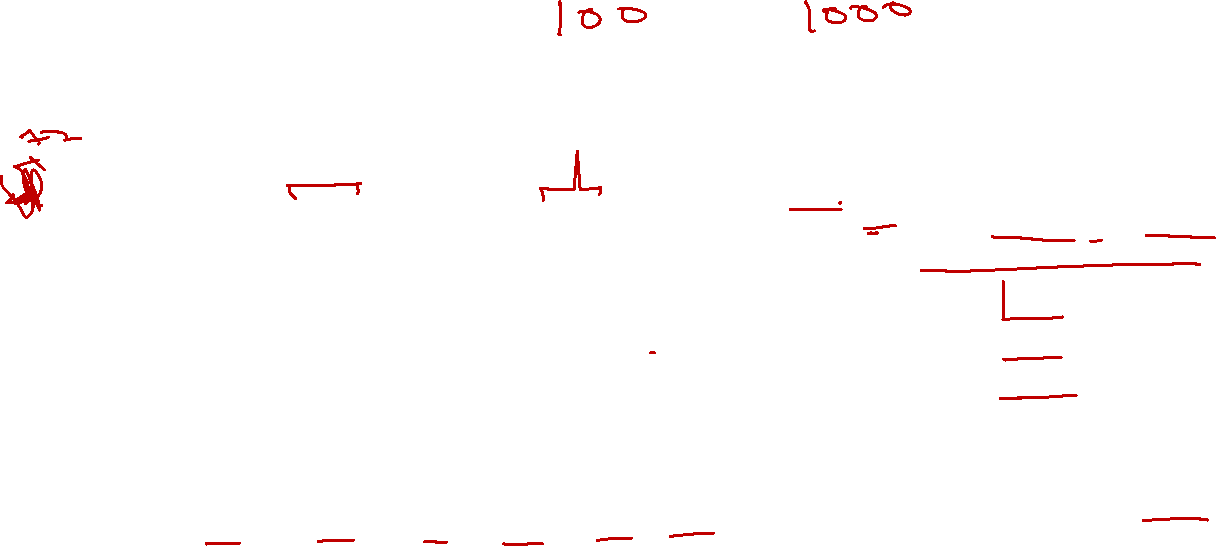 100 1000